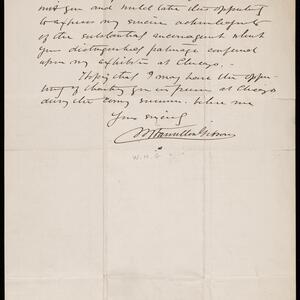 not you and until late the opportunity
to express my sincere acknowledgments
of the substantial encouragement which
your distinguished patronage conferred
upon my exhibition at Chicago. -
Hoping that I may have the oppor-
tunity of thanking you in person at Chicago
during the coming summer. Believe me
Yours sincerely
W Hamilton Gibson
W.H.G